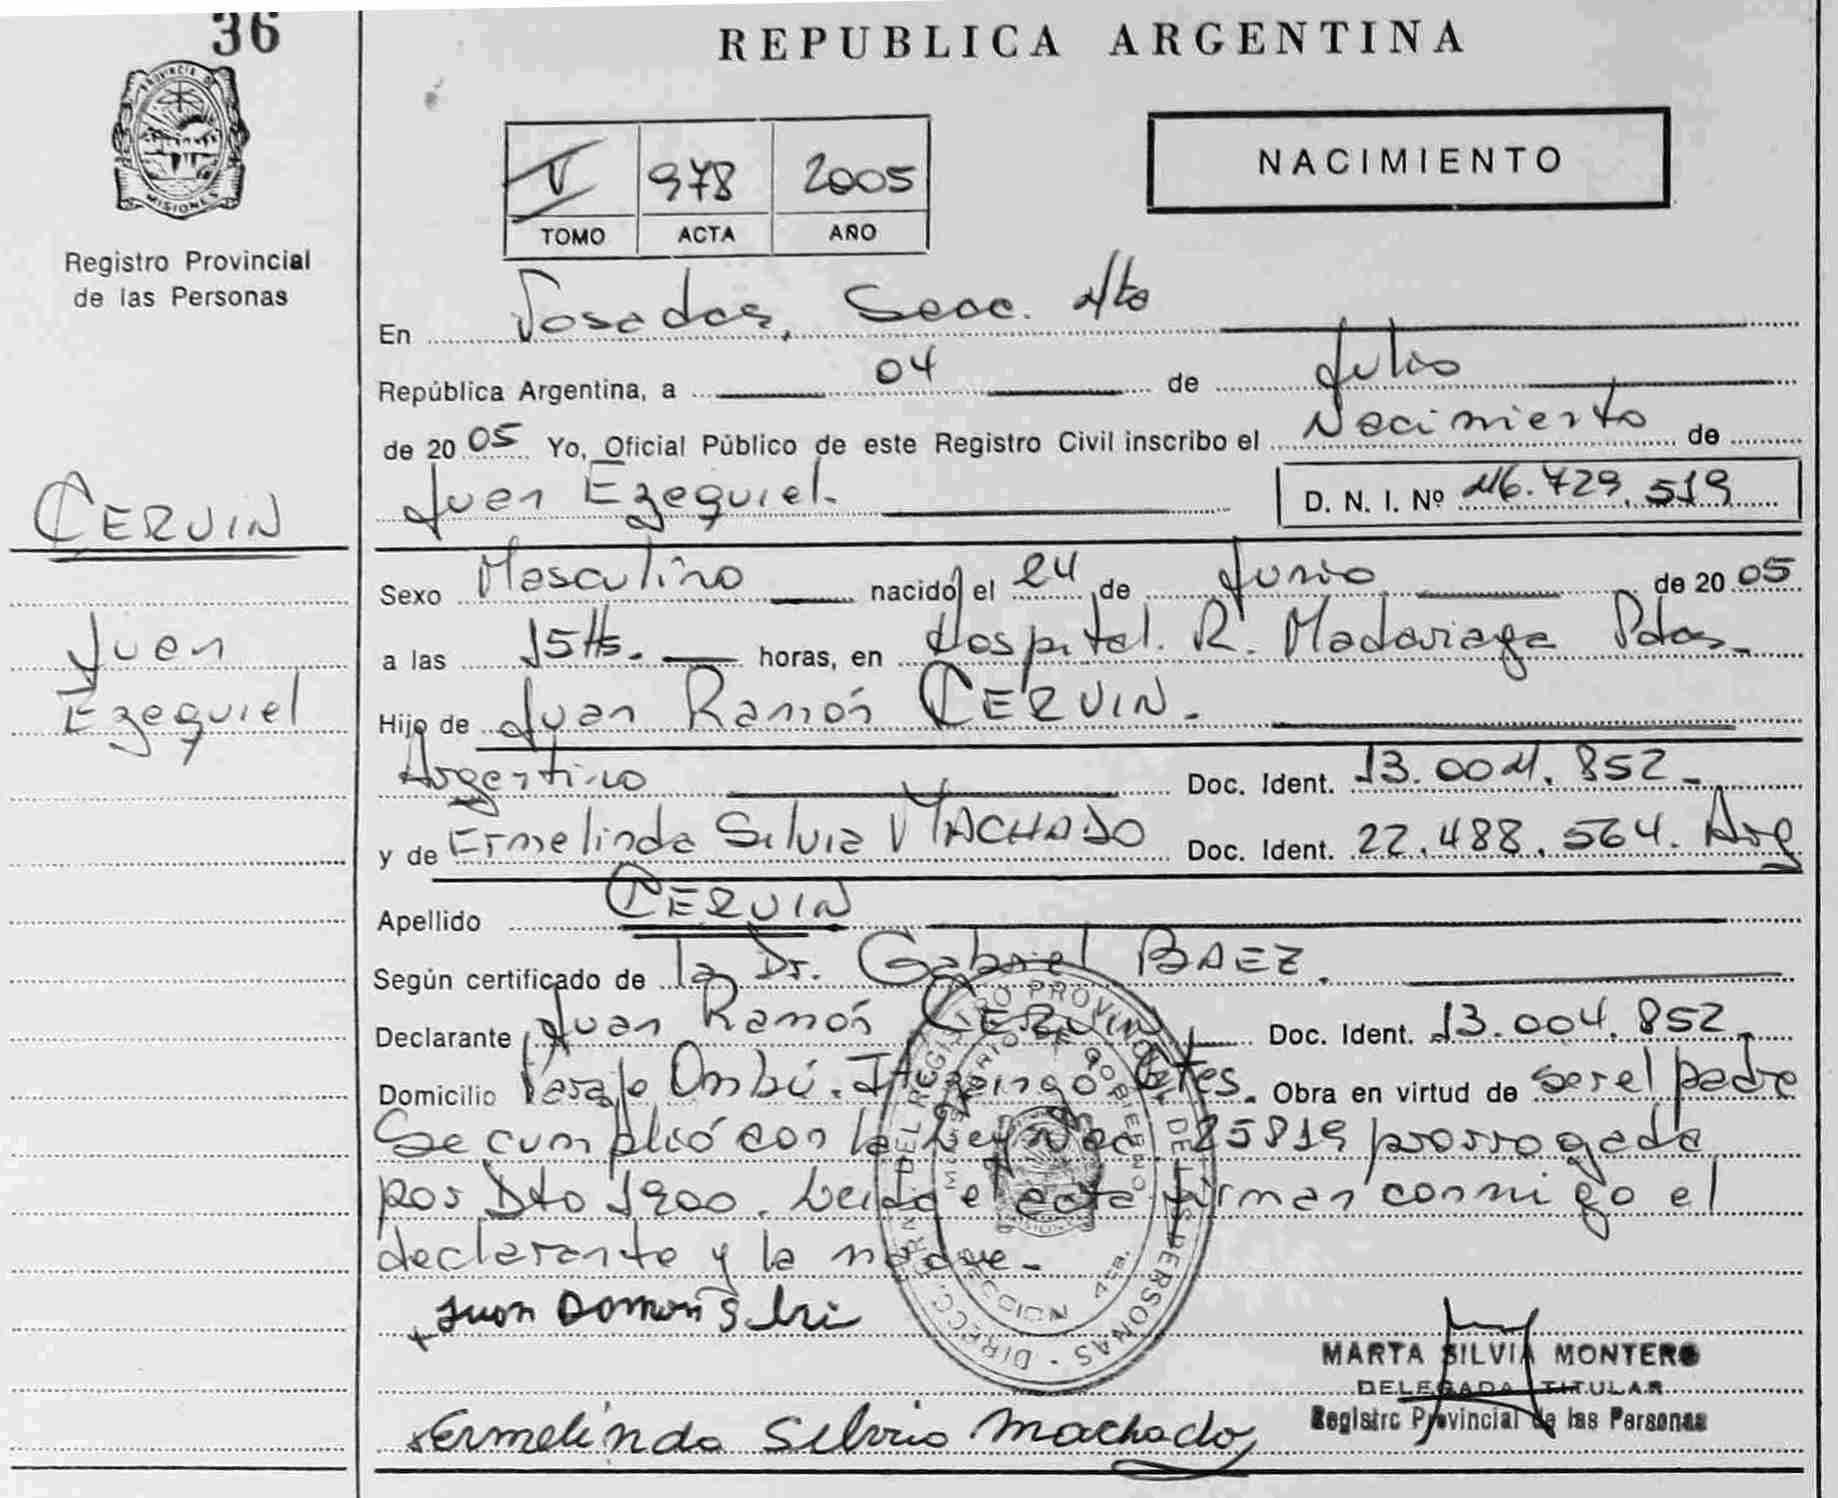 36
REPUBLICA ARGENTINA
PROVINCIA DE
MISIONES
Registro Provincial
de las Personas
V 978 2005
TOMO ACTA AÑO
NACIMIENTO
En Posadas, Secc. 4ta
República Argentina, a 04 de Julio
de 2005 Yo, Oficial Público de este Registro Civil inscribo el Nacimiento de
Juan Ezequiel. D. N. I. Nº 46.729.519
CERVIN
Juan
Ezequiel
Sexo Masculino nacido el 24 de Junio de 2005
a las 15Hs. horas, en Hospital. R. Madariaga Pdas.
Hijo de Juan Ramón CERVIN.
Argentino Doc. Ident. 13.004.852
y de Ermelinda Silvia MACHADO Doc. Ident. 22.488.564. Arg
Apellido CERVIN
Según certificado de la Dr. Gabriel BAEZ.
Declarante Juan Ramón CERVIN Doc. Ident. 13.004.852
Domicilio Paraje Ombú. Ctes. Obra en virtud de ser el padre
Se cumplió con la Ley 25819 prorrogada
por Dto 1900. Leida el acta firman conmigo el
declarante y la madre.
DIRECC. GRAL. DEL REGISTRO PROVINCIAL DE LAS PERSONAS
MINISTERIO DE GOBIERNO
SECCION 4ta.
MISIONES
x Juan
MARTA SILVIA MONTERO
DELEGADA TITULAR
Registro Provincial de las Personas
x Ermelinda Silvia Machado